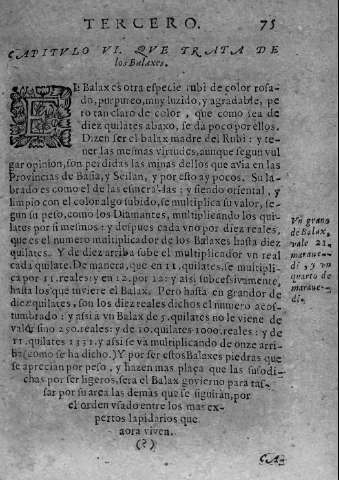 TERCERO. 75
CAPITVLO VI. QVE TRATA DE
los Balaxes.
EL Balax es otra especie rubi de color rosa-
do, purpureo, muy luzido, y agradable, pe
ro tan claro de color, que como sea de
diez quilates abaxo, se da poco por ellos.
Dizen ser el balax madre del Rubi: y te-
ner las mesmas virtudes, aunque segun vul
gar opinion, son perdidas las minas dellos que avia en las
Provincias de Basia, y Seilan, y por esto ay pocos. Su la-
brado es como el de las esmeraldas: y siendo oriental, y
limpio con el color algo subido, se multiplica su valor, se-
gun su peso, como los Diamantes, multiplicando los qui-
lates por si mesmos: y despues cada vno por diez reales,
que es el numero multiplicador de los Balaxes hasta diez
quilates. Y de diez arriba sube el multiplicador vn real
cada quilate. De manera, que en 11. quilates, se multipli-
ca por 11. reales: y en 12. por 12: y assi subcessivamente,
hasta los que tuviere el Balax. Pero hasta en grandor de
diez quilates, son los diez reales dichos el numero acos-
tumbrado: y assi a vn Balax de 5. quilates no le viene de
valor sino 250. reales: y de 10. quilates 1000. reales: y de
11. quilates 1331. y assi se va multiplicando de onze arri-
ba (como se ha dicho.) Y por ser estos Balaxes piedras que
se aprecian por peso, y hazen mas plaça que las susodi-
chas por ser ligeros, sera el Balax govierno para tas-
sar por su area las demas que se siguiràn, por
el orden vsado entre los mas ex-
pertos lapidarios que
aora viven.
(?)
Vn grano
de Balax,
vale 21.
marave-
di, y vn
quarto de
marave-
di.
CA-